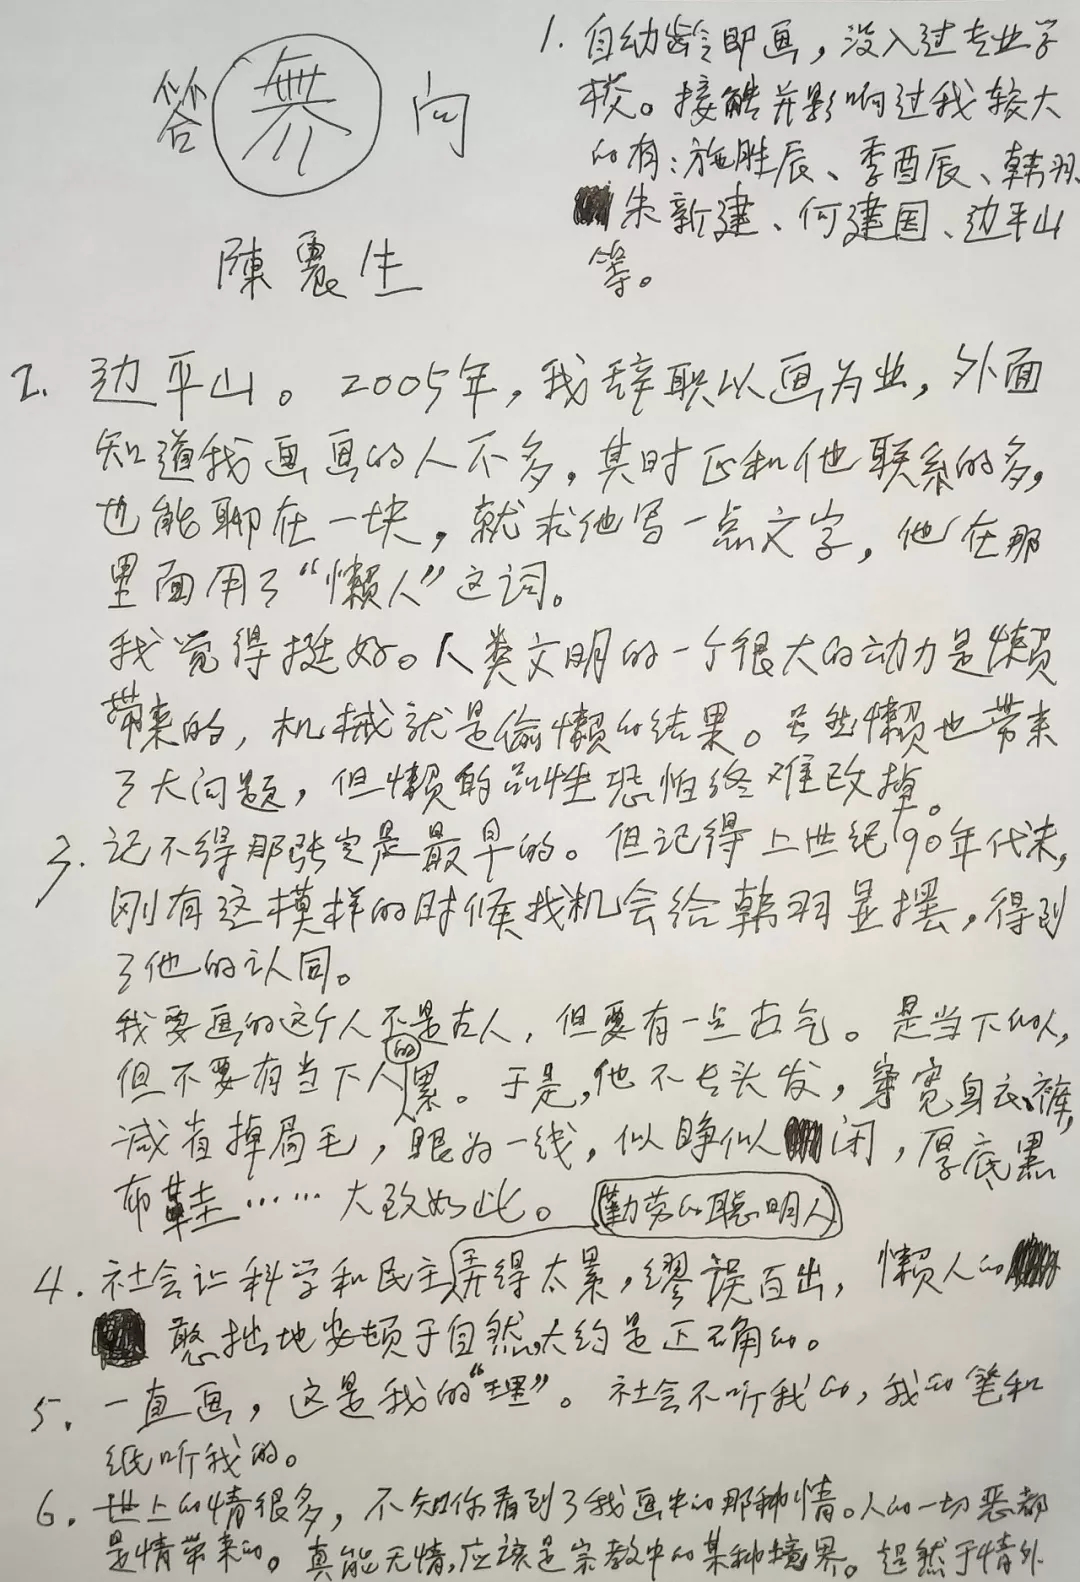 答無问
陳震生
1. 自幼龄即画，没入过专业学
校。接触并影响过我较大
的有：施胜辰、季酉辰、韩羽
朱新建、何建国、边平山
等。
2. 边平山。2005年，我辞职以画为业，外面
知道我画画的人不多，其时正和他联系的多，
也能聊在一块，就求他写一点文字，他在那
里面用了“懒人”这词。
我觉得挺好。人类文明的一个很大的动力是懒
带来的，机械就是偷懒的结果。虽然懒也带来
了大问题，但懒的品性恐怕终难改掉。
3. 记不得那张定是最早的。但记得上世纪90年代末，
刚有这模样的时候找机会给韩羽显摆，得到
了他的认同。
我要画的这个人不是古人，但要有一点古气。是当下的人，
但不要有当下人的累。于是，他不长头发，穿宽身衣裤，
减省掉眉毛，眼为一线，似睁似闭，厚底黑
布鞋……大致如此。
4. 社会让科学和民主勤劳的聪明人弄得太累，缪误百出，懒人的
憨拙地安顿于自然，大约是正确的。
5. 一直画，这是我的“理”。社会不听我的，我的笔和
纸听我的。
6. 世上的情很多，不知你看到了我画中的那种情。人的一切恶都
是情带来的。真能无情，应该是宗教中的某种境界。超然于情外